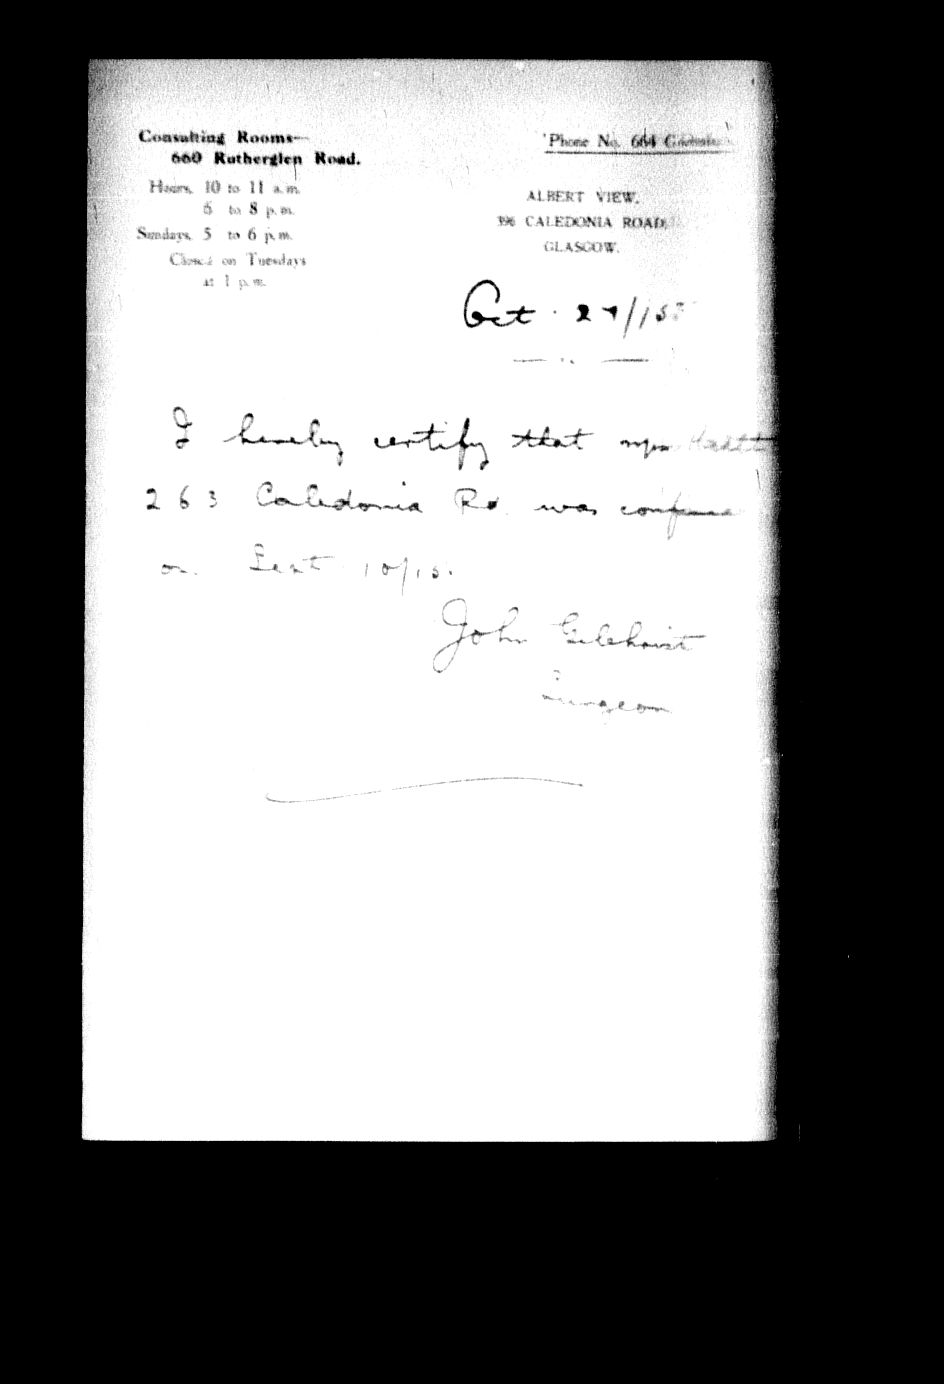 Consulting Rooms—
660 Rutherglen Road.
Hours, 10 to 11 a.m.
6 to 8 p.m.
Sundays, 5 to 6 p.m.
Closed on Tuesdays
at 1 p.m.
'Phone No. 664
ALBERT VIEW,
396 CALEDONIA ROAD,
GLASGOW.
Oct. 27/15
I hereby certify that Mrs
263 Caledonia Rd. was confined
on Sept 10/15.
John Gilchrist
Surgeon